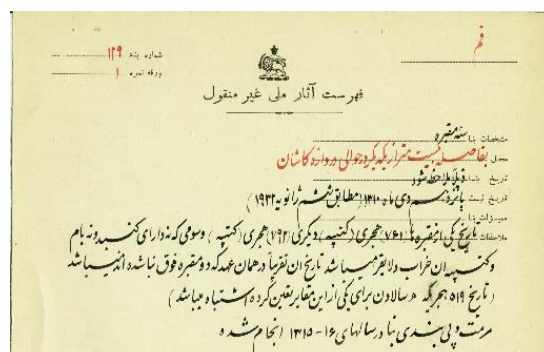 قم
شماره بناء ۱۲۹
ورقه نمره ۱
فهرست آثار ملی غیر منقول
مشخصات بنا سه مقبره
محل بفاصله بیست متر از یکدیگر در حوالی دروازه کاشان
تاریخ بنا ذیلاً ملاحظه شود
تاریخ ثبت پانزدهم دی ماه ۱۳۱۰ (مطابق ششم ژانویه ۱۹۳۲)
میزات بنا
ملاحظات تاریخ یکی از مقبره ها (۷۶۱) هجری (کتیبه) دیگری (۷۹۲) هجری (کتیبه) و سومی که نه دارای گنبد و نه بام
و کتیبه آن خراب و لایقرء میباشد تاریخ آن تقریباً در همان عهد که دو مقبره فوق بنا شده اند میباشد
(تاریخ ۵۱۹ هجری که هر سالادن برای یکی از این مقابر تعیین کرده اشتباه میباشد)
مرمت و پی بندی بنا در سالهای ۱۶-۱۳۱۵ انجام شده